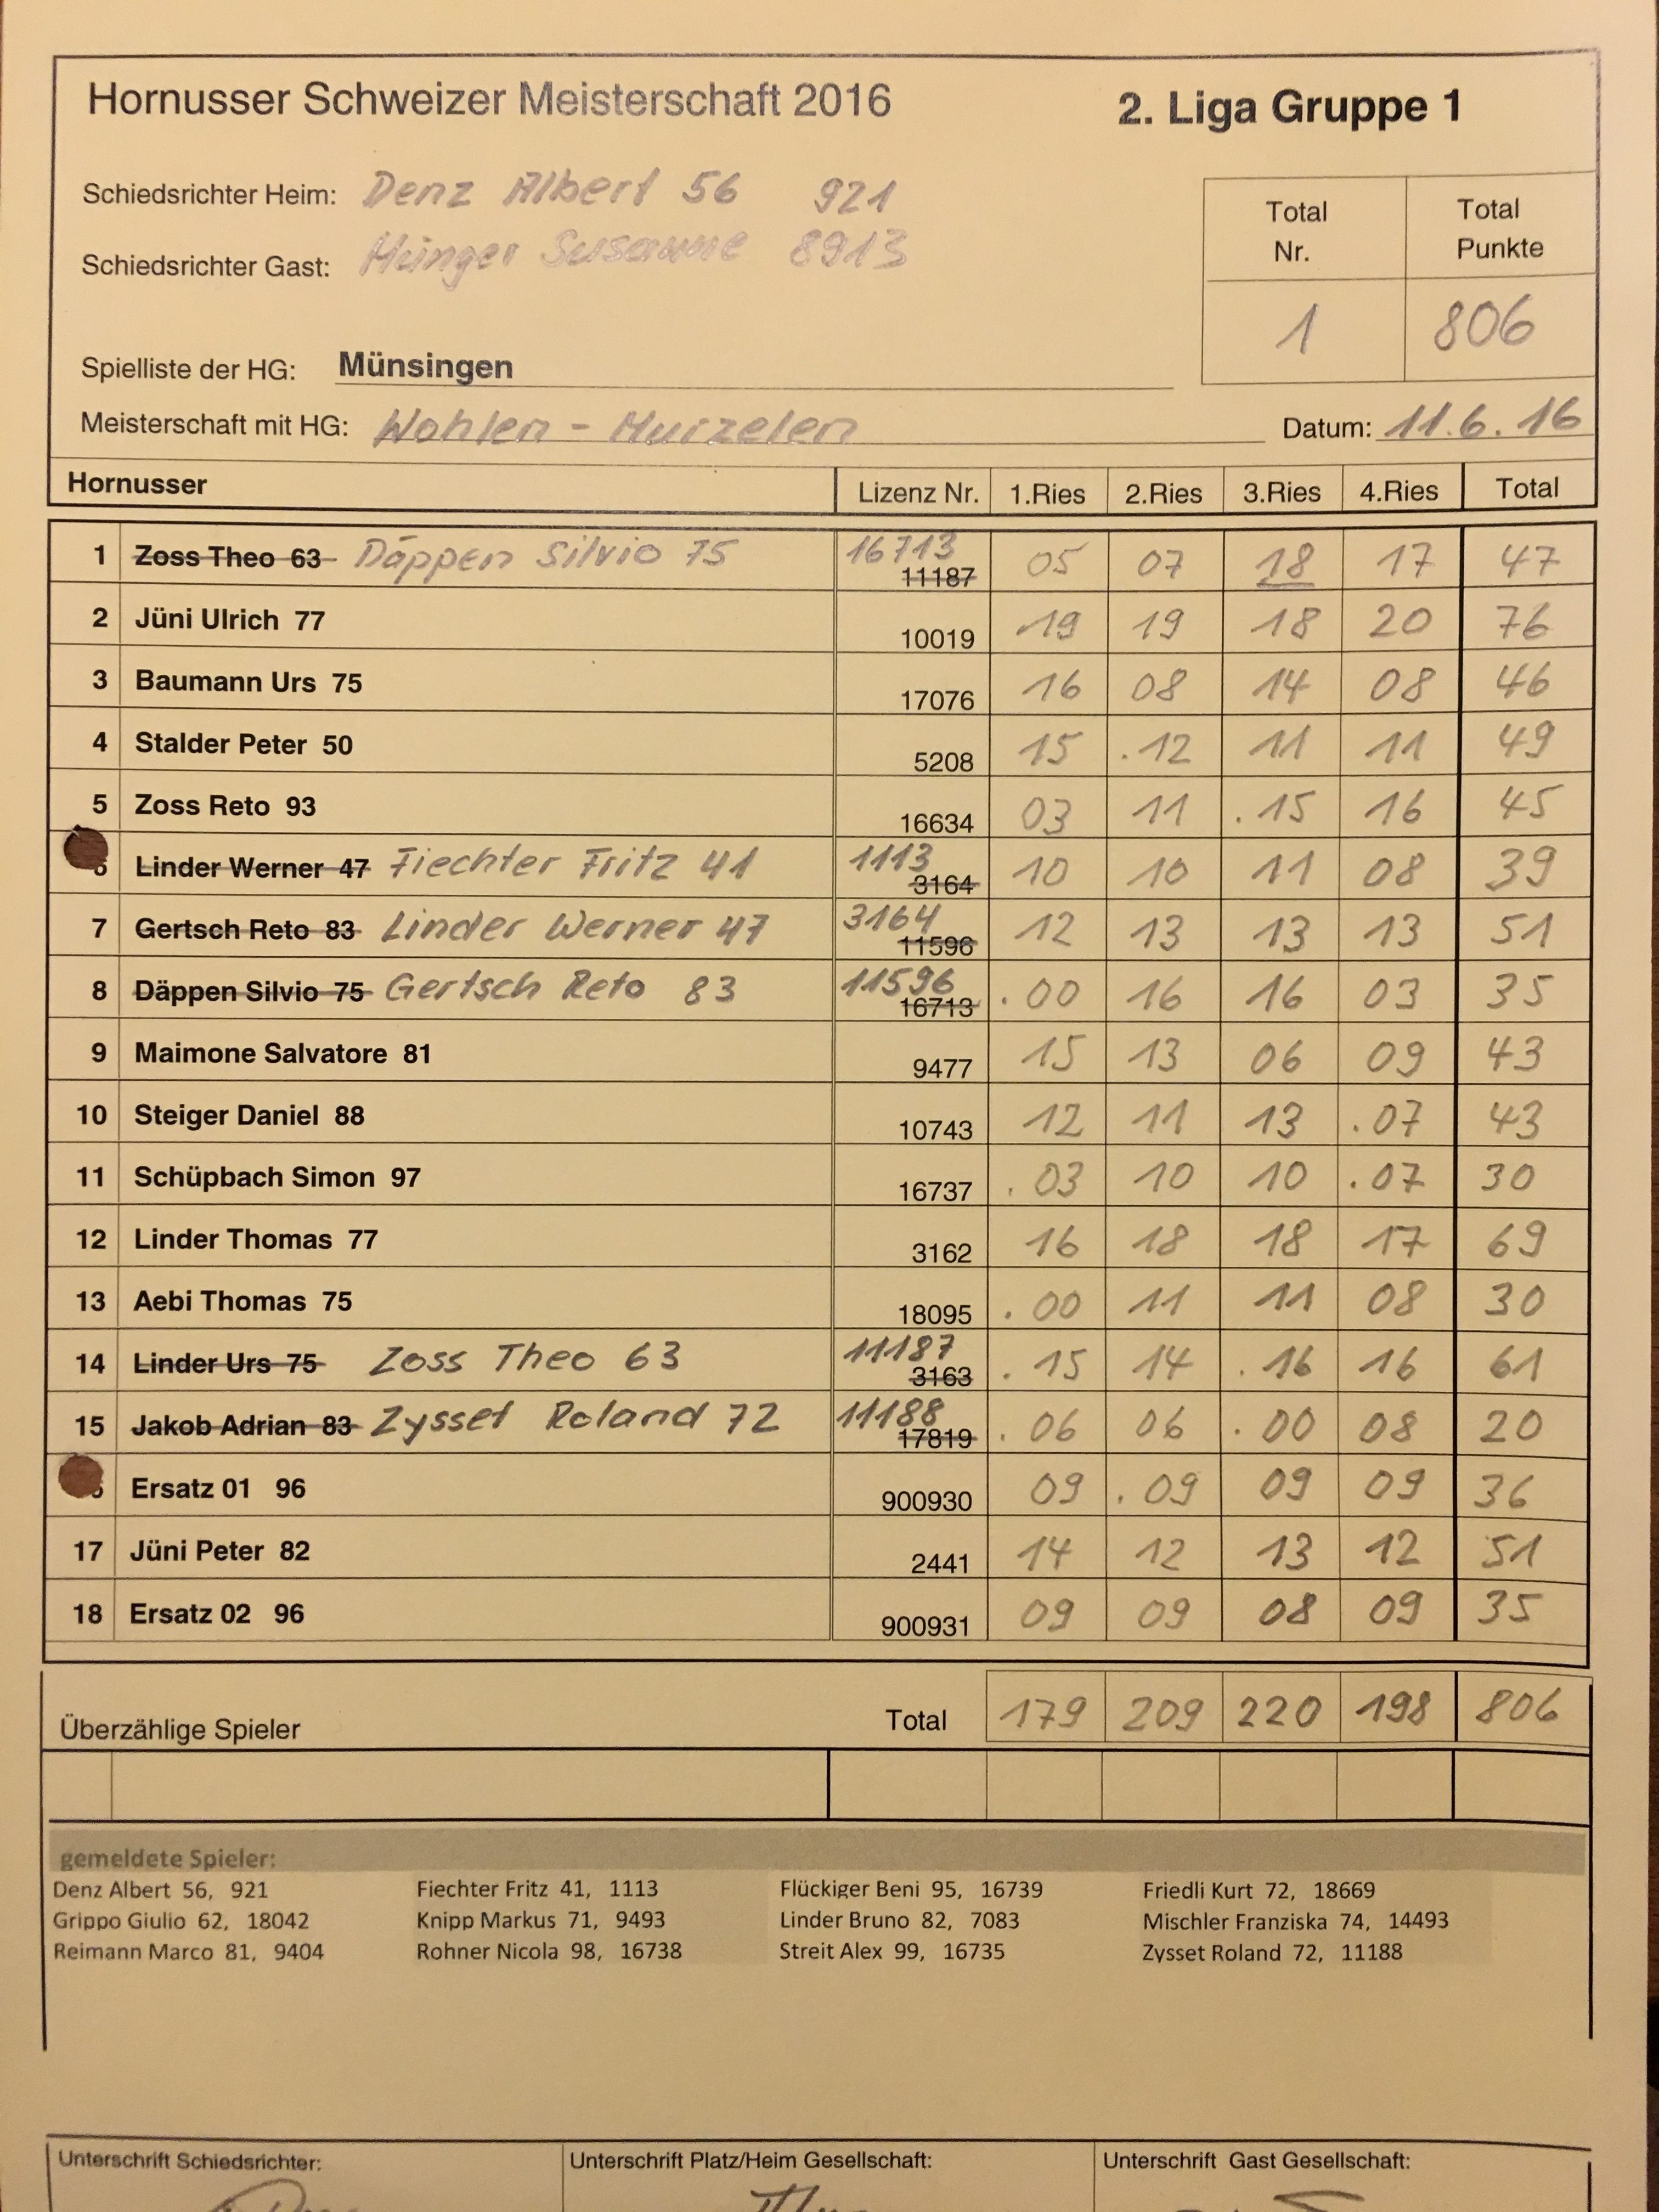 Hornusser Schweizer Meisterschaft 2016 2. Liga Gruppe 1
Schiedsrichter Heim: Denz Albert 56 921
Schiedsrichter Gast: Münger Susanne 8913
Total Nr. Total Punkte
1 806
Spielliste der HG: Münsingen
Meisterschaft mit HG: Wohlen - Murzelen Datum: 11.6.16
Hornusser Lizenz Nr. 1.Ries 2.Ries 3.Ries 4.Ries Total
1 Zoss Theo 63 Däppen Silvio 75 16713 11187 05 07 18 17 47
2 Jüni Ulrich 77 10019 19 19 18 20 76
3 Baumann Urs 75 17076 16 08 14 08 46
4 Stalder Peter 50 5208 15 .12 11 11 49
5 Zoss Reto 93 16634 03 11 .15 16 45
6 Linder Werner 47 Fiechter Fritz 41 1113 3164 10 10 11 08 39
7 Gertsch Reto 83 Linder Werner 47 3164 11596 12 13 13 13 51
8 Däppen Silvio 75 Gertsch Reto 83 11596 16713 .00 16 16 03 35
9 Maimone Salvatore 81 9477 15 13 06 09 43
10 Steiger Daniel 88 10743 12 11 13 .07 43
11 Schüpbach Simon 97 16737 .03 10 10 .07 30
12 Linder Thomas 77 3162 16 18 18 17 69
13 Aebi Thomas 75 18095 .00 11 11 08 30
14 Linder Urs 75 Zoss Theo 63 11187 3163 .15 14 .16 16 61
15 Jakob Adrian 83 Zysset Roland 72 11188 17819 .06 06 .00 08 20
Ersatz 01 96 900930 09 .09 09 09 36
17 Jüni Peter 82 2441 14 12 13 12 51
18 Ersatz 02 96 900931 09 09 08 09 35
Überzählige Spieler Total 179 209 220 198 806
gemeldete Spieler:
Denz Albert 56, 921 Fiechter Fritz 41, 1113 Flückiger Beni 95, 16739 Friedli Kurt 72, 18669
Grippo Giulio 62, 18042 Knipp Markus 71, 9493 Linder Bruno 82, 7083 Mischler Franziska 74, 14493
Reimann Marco 81, 9404 Rohner Nicola 98, 16738 Streit Alex 99, 16735 Zysset Roland 72, 11188
Unterschrift Schiedsrichter: Unterschrift Platz/Heim Gesellschaft: Unterschrift Gast Gesellschaft: